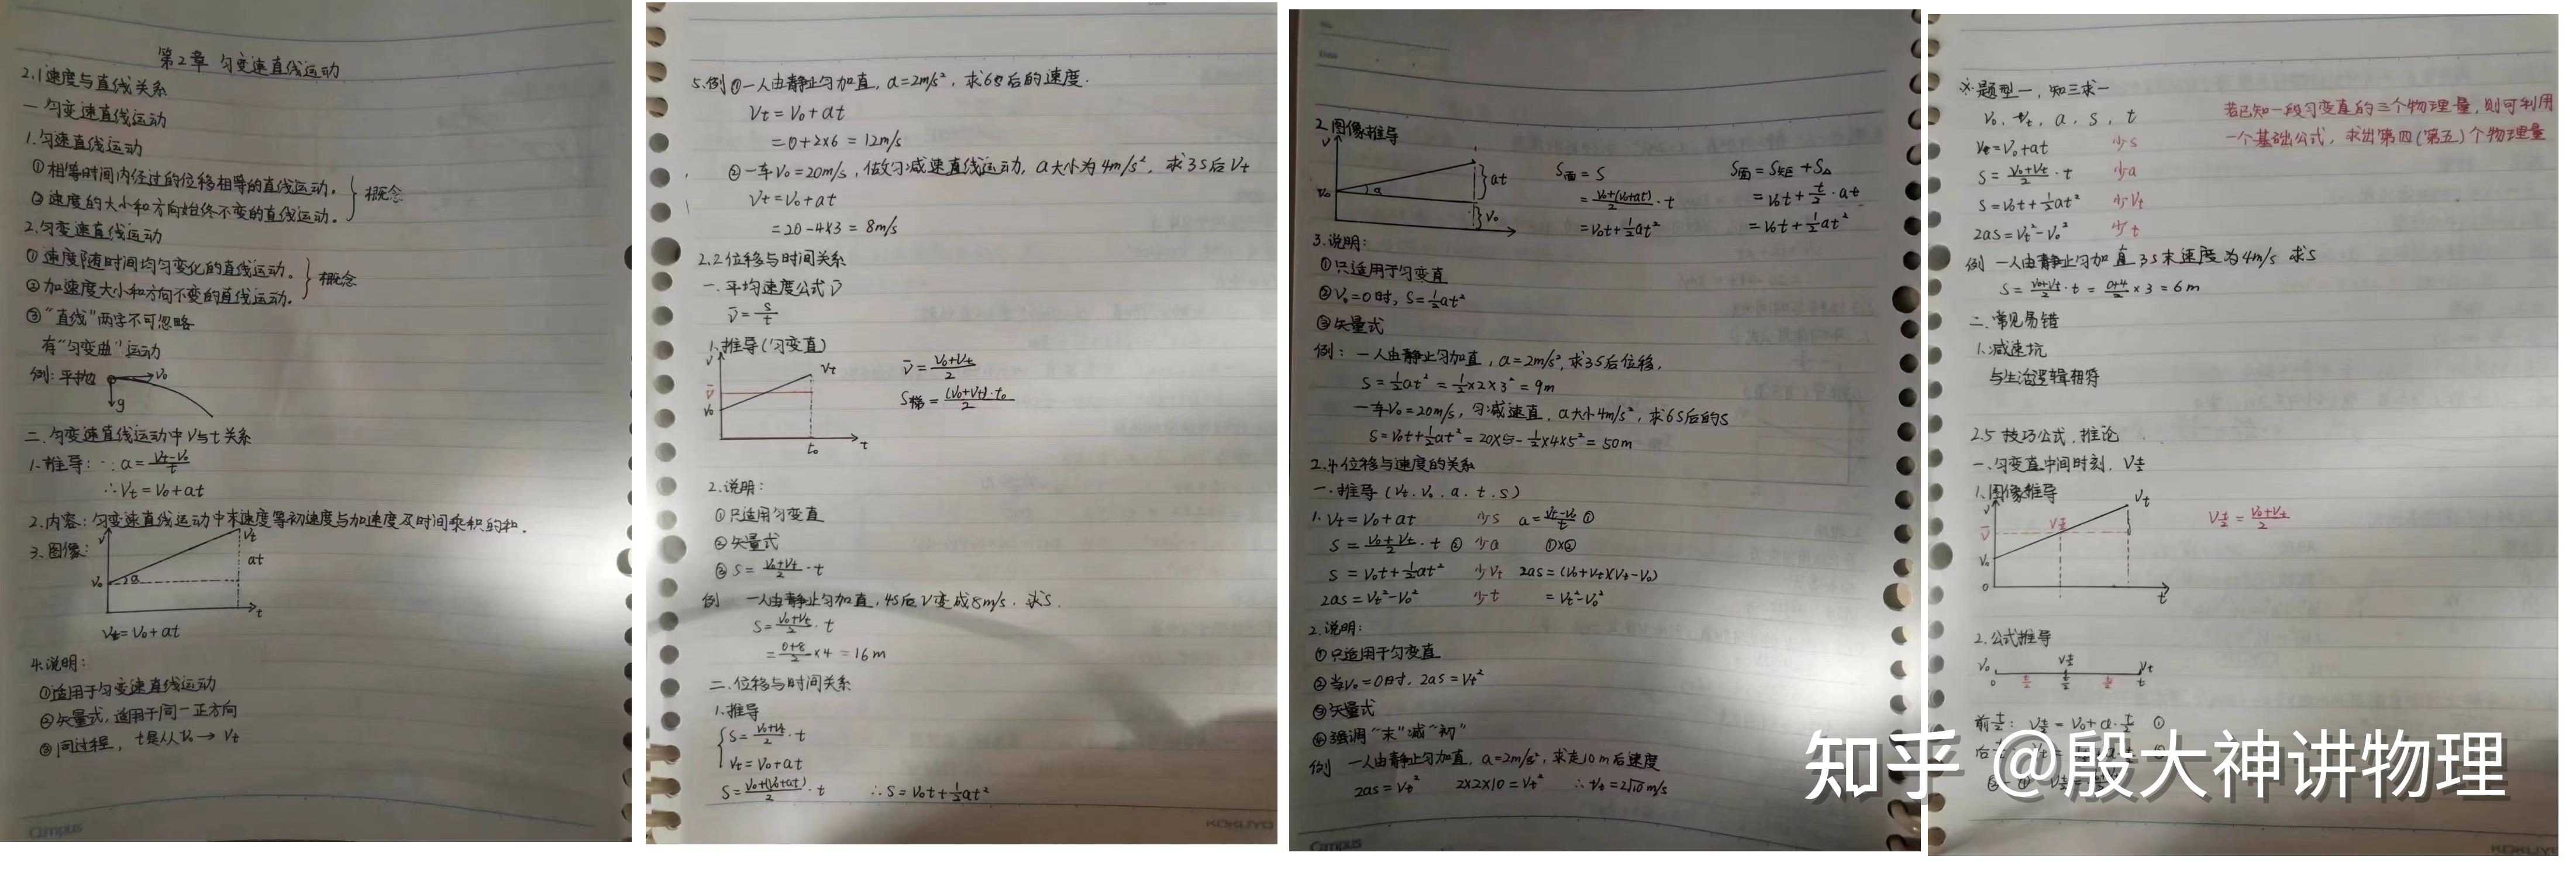 第2章 匀变速直线运动
2.1速度与直线关系
一 匀变速直线运动
1.匀速直线运动
①相等时间内经过的位移相等的直线运动。
②速度的大小和方向始终不变的直线运动。
概念
2.匀变速直线运动
①速度随时间均匀变化的直线运动。
②加速度大小和方向不变的直线运动。
概念
③"直线"两字不可忽略
有"匀变曲"运动
例:平抛
V₀
g
二.匀变速直线运动中V与t关系
1.推导: ∵a=(Vt-V₀)/t
∴Vt=V₀+at
2.内容:匀变速直线运动中末速度等初速度与加速度及时间乘积的和.
3.图像:
V
Vt
at
V₀
t
Vt=V₀+at
4.说明:
①适用于匀变速直线运动
②矢量式,适用于同一正方向
③同过程, t是从V₀→Vt
Campus
5.例①一人由静止匀加直, a=2m/s², 求6s后的速度.
Vt=V₀+at
=0+2×6=12m/s
②一车V₀=20m/s, 做匀减速直线运动, a大小为4m/s², 求3s后Vt
Vt=V₀+at
=20-4×3=8m/s
2.2位移与时间关系
一.平均速度公式V̄
V̄=s/t
1.推导(匀变直)
V
Vt
V̄
V₀
t₀
t
V̄=(V₀+Vt)/2
S梯=(V₀+Vt)·t₀/2
2.说明:
①只适用匀变直
②矢量式
③S=(V₀+Vt)/2·t
例 一人由静止匀加直,4s后V变成8m/s.求S.
S=(V₀+Vt)/2·t
=(0+8)/2×4=16m
二.位移与时间关系
1.推导
S=(V₀+Vt)/2·t
Vt=V₀+at
S=(V₀+(V₀+at))/2·t ∴S=V₀t+½at²
2.图像推导
V
at
V₀
V₀
S面=S
=(V₀+(V₀+at))/2·t
=V₀t+½at²
S面=S矩+S△
=V₀t+t/2·at
=V₀t+½at²
3.说明:
①只适用于匀变直
②V₀=0时, S=½at²
③矢量式
例: 一人由静止匀加直, a=2m/s², 求3S后位移.
S=½at²=½×2×3²=9m
一车V₀=20m/s, 匀减速直, a大小4m/s², 求6S后的S
S=V₀t+½at²=20×5-½×4×5²=50m
2.4位移与速度的关系
一.推导(Vt.V₀.a.t.s)
1.Vt=V₀+at 少s a=(Vt-V₀)/t ①
S=(V₀+Vt)/2·t ② 少a ①×②
S=V₀t+½at² 少Vt 2as=(V₀+Vt)(Vt-V₀)
2as=Vt²-V₀² 少t =Vt²-V₀²
2.说明:
①只适用于匀变直
②当V₀=0时, 2as=Vt²
③矢量式
④强调"末"减"初"
例 一人由静止匀加直, a=2m/s², 求走10m后速度
2as=Vt² 2×2×10=Vt² ∴Vt=2√10m/s
Campus
※题型一,知三求一
V₀、Vt、a、s、t
若已知一段匀变直的三个物理量,则可利用
一个基础公式,求出第四(第五)个物理量
Vt=V₀+at 少s
S=(V₀+Vt)/2·t 少a
S=V₀t+½at² 少Vt
2as=Vt²-V₀² 少t
例 一人由静止匀加直3S末速度为4m/s 求S
S=(V₀+Vt)/2·t=(0+4)/2×3=6m
二.常见易错
1.减速坑
与生活逻辑相符
2.5 技巧公式,推论
一.匀变直中间时刻, Vt/2
1.图像推导
V
Vt
Vt/2
V̄
V₀
0
t
Vt/2=(V₀+Vt)/2
2.公式推导
V₀ Vt/2 Vt
0 t/2 t/2 t/2 t
前t/2: Vt/2=V₀+a·t/2 ①
知乎 @殷大神讲物理